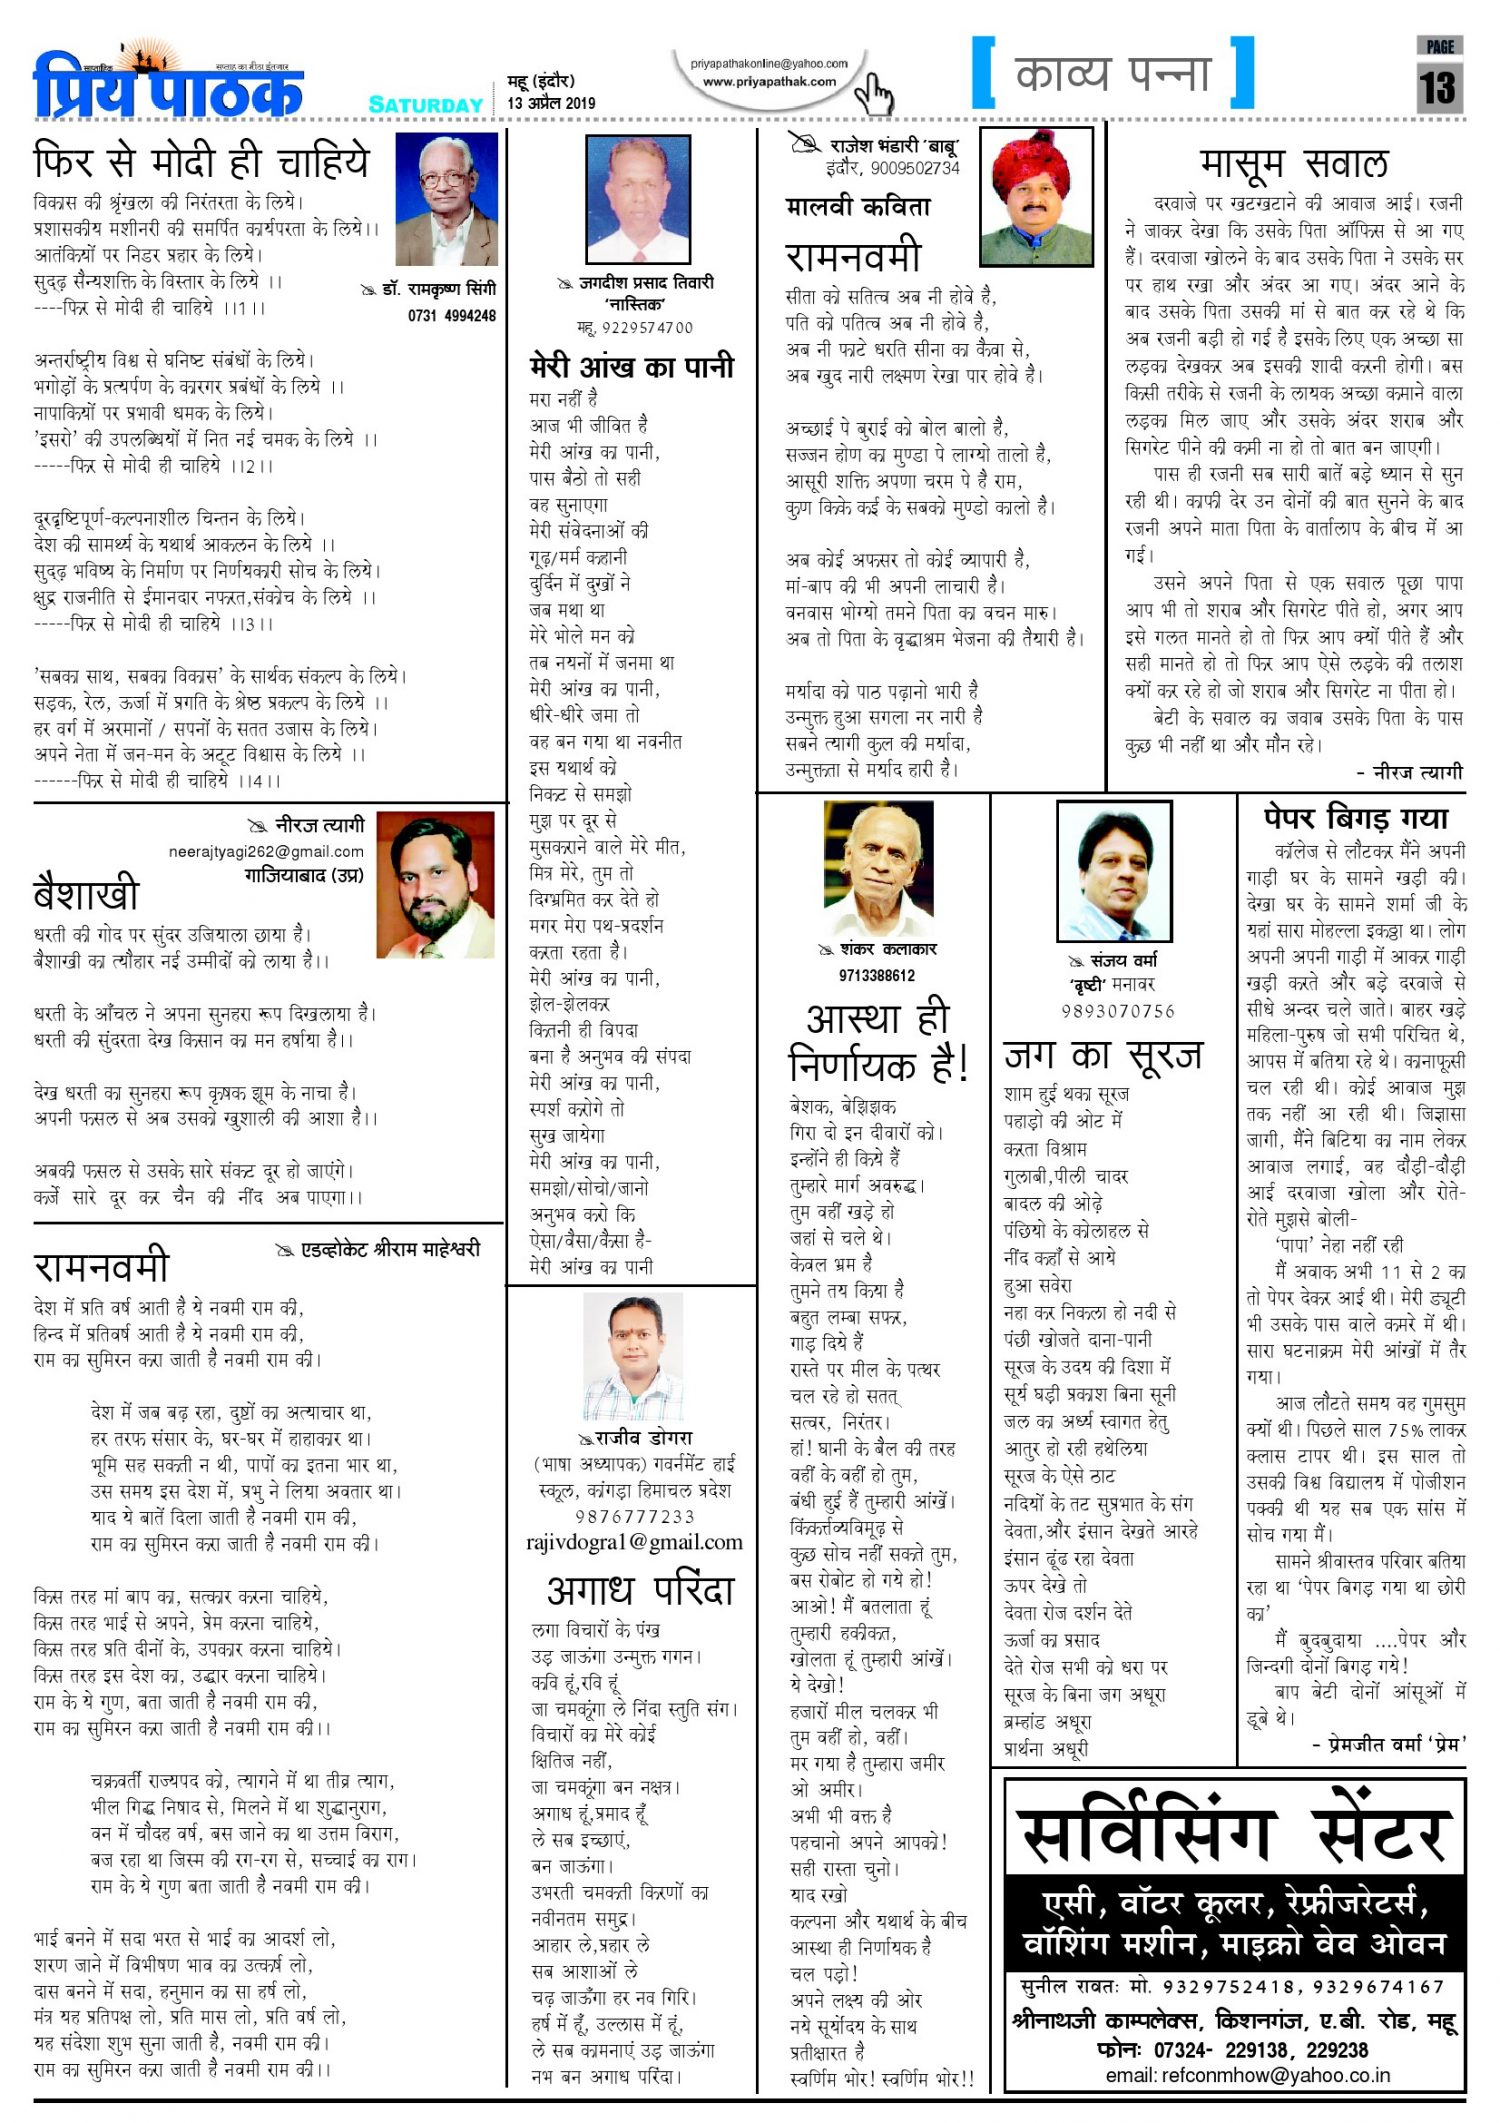 साप्ताहिक
सप्ताह का मीठा इंतजार
प्रिय पाठक
SATURDAY
महू (इंदौर)
13 अप्रैल 2019
priyapathakonline@yahoo.com
www.priyapathak.com
[ काव्य पन्ना ]
PAGE
13
फिर से मोदी ही चाहिये
विकास की श्रृंखला की निरंतरता के लिये।
प्रशासकीय मशीनरी की समर्पित कार्यपरता के लिये।।
आतंकियों पर निडर प्रहार के लिये।
सुदृढ़ सैन्यशक्ति के विस्तार के लिये ।।
----फिर से मोदी ही चाहिये ।।1।।
डॉ. रामकृष्ण सिंगी
0731 4994248
अन्तर्राष्ट्रीय विश्व से घनिष्ट संबंधों के लिये।
भगोड़ों के प्रत्यर्पण के कारगर प्रबंधों के लिये ।।
नापाकियों पर प्रभावी धमक के लिये।
'इसरो' की उपलब्धियों में नित नई चमक के लिये ।।
-----फिर से मोदी ही चाहिये ।।2।।
दूरदृष्टिपूर्ण-कल्पनाशील चिन्तन के लिये।
देश की सामर्थ्य के यथार्थ आकलन के लिये ।।
सुदृढ़ भविष्य के निर्माण पर निर्णयकारी सोच के लिये।
क्षुद्र राजनीति से ईमानदार नफरत,संकोच के लिये ।।
-----फिर से मोदी ही चाहिये ।।3।।
'सबका साथ, सबका विकास' के सार्थक संकल्प के लिये।
सड़क, रेल, ऊर्जा में प्रगति के श्रेष्ठ प्रकल्प के लिये ।।
हर वर्ग में अरमानों / सपनों के सतत उजास के लिये।
अपने नेता में जन-मन के अटूट विश्वास के लिये ।।
------फिर से मोदी ही चाहिये ।।4।।
नीरज त्यागी
neerajtyagi262@gmail.com
गाजियाबाद (उप्र)
बैशाखी
धरती की गोद पर सुंदर उजियाला छाया है।
बैशाखी का त्यौहार नई उम्मीदों को लाया है।।
धरती के आँचल ने अपना सुनहरा रूप दिखलाया है।
धरती की सुंदरता देख किसान का मन हर्षाया है।।
देख धरती का सुनहरा रूप कृषक झूम के नाचा है।
अपनी फसल से अब उसको खुशाली की आशा है।।
अबकी फसल से उसके सारे संकट दूर हो जाएंगे।
कर्जे सारे दूर कर चैन की नींद अब पाएगा।।
एडव्होकेट श्रीराम माहेश्वरी
रामनवमी
देश में प्रति वर्ष आती है ये नवमी राम की,
हिन्द में प्रतिवर्ष आती है ये नवमी राम की,
राम का सुमिरन करा जाती है नवमी राम की।
देश में जब बढ़ रहा, दुष्टों का अत्याचार था,
हर तरफ संसार के, घर-घर में हाहाकार था।
भूमि सह सकती न थी, पापों का इतना भार था,
उस समय इस देश में, प्रभु ने लिया अवतार था।
याद ये बातें दिला जाती है नवमी राम की,
राम का सुमिरन करा जाती है नवमी राम की।
किस तरह मां बाप का, सत्कार करना चाहिये,
किस तरह भाई से अपने, प्रेम करना चाहिये,
किस तरह प्रति दीनों के, उपकार करना चाहिये।
किस तरह इस देश का, उद्धार करना चाहिये।
राम के ये गुण, बता जाती है नवमी राम की,
राम का सुमिरन करा जाती है नवमी राम की।।
चक्रवर्ती राज्यपद को, त्यागने में था तीव्र त्याग,
भील गिद्ध निषाद से, मिलने में था शुद्धानुराग,
वन में चौदह वर्ष, बस जाने का था उत्तम विराग,
बज रहा था जिस्म की रग-रग से, सच्चाई का राग।
राम के ये गुण बता जाती है नवमी राम की।
भाई बनने में सदा भरत से भाई का आदर्श लो,
शरण जाने में विभीषण भाव का उत्कर्ष लो,
दास बनने में सदा, हनुमान का सा हर्ष लो,
मंत्र यह प्रतिपक्ष लो, प्रति मास लो, प्रति वर्ष लो,
यह संदेशा शुभ सुना जाती है, नवमी राम की।
राम का सुमिरन करा जाती है नवमी राम की।।
जगदीश प्रसाद तिवारी
'नास्तिक'
महू, 9229574700
मेरी आंख का पानी
मरा नहीं है
आज भी जीवित है
मेरी आंख का पानी,
पास बैठो तो सही
वह सुनाएगा
मेरी संवेदनाओं की
गूढ़/मर्म कहानी
दुर्दिन में दुखों ने
जब मथा था
मेरे भोले मन को
तब नयनों में जनमा था
मेरी आंख का पानी,
धीरे-धीरे जमा तो
वह बन गया था नवनीत
इस यथार्थ को
निकट से समझो
मुझ पर दूर से
मुसकराने वाले मेरे मीत,
मित्र मेरे, तुम तो
दिग्भ्रमित कर देते हो
मगर मेरा पथ-प्रदर्शन
करता रहता है।
मेरी आंख का पानी,
झेल-झेलकर
कितनी ही विपदा
बना है अनुभव की संपदा
मेरी आंख का पानी,
स्पर्श करोगे तो
सुख जायेगा
मेरी आंख का पानी,
समझो/सोचो/जानो
अनुभव करो कि
ऐसा/वैसा/कैसा है-
मेरी आंख का पानी
राजीव डोगरा
(भाषा अध्यापक) गवर्नमेंट हाई
स्कूल, कांगड़ा हिमाचल प्रदेश
9876777233
rajivdogra1@gmail.com
अगाध परिंदा
लगा विचारों के पंख
उड़ जाऊंगा उन्मुक्त गगन।
कवि हूं,रवि हूं
जा चमकूंगा ले निंदा स्तुति संग।
विचारों का मेरे कोई
क्षितिज नहीं,
जा चमकूंगा बन नक्षत्र।
अगाध हूं,प्रमाद हूँ
ले सब इच्छाएं,
बन जाऊंगा।
उभरती चमकती किरणों का
नवीनतम समुद्र।
आहार ले,प्रहार ले
सब आशाओं ले
चढ़ जाऊँगा हर नव गिरि।
हर्ष में हूँ, उल्लास में हूं,
ले सब कामनाएं उड़ जाऊंगा
नभ बन अगाध परिंदा।
राजेश भंडारी 'बाबू'
इंदौर, 9009502734
मालवी कविता
रामनवमी
सीता को सतित्व अब नी होवे है,
पति को पतित्व अब नी होवे है,
अब नी फाटे धरति सीना का कैवा से,
अब खुद नारी लक्ष्मण रेखा पार होवे है।
अच्छाई पे बुराई को बोल बालो है,
सज्जन होण का मुण्डा पे लाग्यो तालो है,
आसूरी शक्ति अपणा चरम पे है राम,
कुण किके कई के सबको मुण्डो कालो है।
अब कोई अफसर तो कोई व्यापारी है,
मां-बाप की भी अपनी लाचारी है।
वनवास भोग्यो तमने पिता का वचन मारु।
अब तो पिता के वृद्धाश्रम भेजना की तैयारी है।
मर्यादा को पाठ पढ़ानो भारी है
उन्मुक्त हुआ सगला नर नारी है
सबने त्यागी कुल की मर्यादा,
उन्मुक्तता से मर्याद हारी है।
मासूम सवाल
दरवाजे पर खटखटाने की आवाज आई। रजनी
ने जाकर देखा कि उसके पिता ऑफिस से आ गए
हैं। दरवाजा खोलने के बाद उसके पिता ने उसके सर
पर हाथ रखा और अंदर आ गए। अंदर आने के
बाद उसके पिता उसकी मां से बात कर रहे थे कि
अब रजनी बड़ी हो गई है इसके लिए एक अच्छा सा
लड़का देखकर अब इसकी शादी करनी होगी। बस
किसी तरीके से रजनी के लायक अच्छा कमाने वाला
लड़का मिल जाए और उसके अंदर शराब और
सिगरेट पीने की कमी ना हो तो बात बन जाएगी।
पास ही रजनी सब सारी बातें बड़े ध्यान से सुन
रही थी। काफी देर उन दोनों की बात सुनने के बाद
रजनी अपने माता पिता के वार्तालाप के बीच में आ
गई।
उसने अपने पिता से एक सवाल पूछा पापा
आप भी तो शराब और सिगरेट पीते हो, अगर आप
इसे गलत मानते हो तो फिर आप क्यों पीते हैं और
सही मानते हो तो फिर आप ऐसे लड़के की तलाश
क्यों कर रहे हो जो शराब और सिगरेट ना पीता हो।
बेटी के सवाल का जवाब उसके पिता के पास
कुछ भी नहीं था और मौन रहे।
- नीरज त्यागी
शंकर कलाकार
9713388612
आस्था ही
निर्णायक है!
बेशक, बेझिझक
गिरा दो इन दीवारों को।
इन्होंने ही किये हैं
तुम्हारे मार्ग अवरुद्ध।
तुम वहीं खड़े हो
जहां से चले थे।
केवल भ्रम है
तुमने तय किया है
बहुत लम्बा सफर,
गाड़ दिये हैं
रास्ते पर मील के पत्थर
चल रहे हो सतत्
सत्वर, निरंतर।
हां! घानी के बैल की तरह
वहीं के वहीं हो तुम,
बंधी हुई हैं तुम्हारी आंखें।
किंकर्त्तव्यविमूढ़ से
कुछ सोच नहीं सकते तुम,
बस रोबोट हो गये हो!
आओ! मैं बतलाता हूं
तुम्हारी हकीकत,
खोलता हूं तुम्हारी आंखें।
ये देखो!
हजारों मील चलकर भी
तुम वहीं हो, वहीं।
मर गया है तुम्हारा जमीर
ओ अमीर।
अभी भी वक्त है
पहचानो अपने आपको!
सही रास्ता चुनो।
याद रखो
कल्पना और यथार्थ के बीच
आस्था ही निर्णायक है
चल पड़ो!
अपने लक्ष्य की ओर
नये सूर्योदय के साथ
प्रतीक्षारत है
स्वर्णिम भोर! स्वर्णिम भोर!!
संजय वर्मा
'दृष्टी' मनावर
9893070756
जग का सूरज
शाम हुई थका सूरज
पहाड़ो की ओट में
करता विश्राम
गुलाबी,पीली चादर
बादल की ओढ़े
पंछियो के कोलाहल से
नींद कहाँ से आये
हुआ सवेरा
नहा कर निकला हो नदी से
पंछी खोजते दाना-पानी
सूरज के उदय की दिशा में
सूर्य घड़ी प्रकाश बिना सूनी
जल का अर्ध्य स्वागत हेतु
आतुर हो रही हथेलिया
सूरज के ऐसे ठाट
नदियों के तट सुप्रभात के संग
देवता,और इंसान देखते आरहे
इंसान ढूंढ रहा देवता
ऊपर देखे तो
देवता रोज दर्शन देते
ऊर्जा का प्रसाद
देते रोज सभी को धरा पर
सूरज के बिना जग अधूरा
ब्रम्हांड अधूरा
प्रार्थना अधूरी
पेपर बिगड़ गया
कॉलेज से लौटकर मैंने अपनी
गाड़ी घर के सामने खड़ी की।
देखा घर के सामने शर्मा जी के
यहां सारा मोहल्ला इकठ्ठा था। लोग
अपनी अपनी गाड़ी में आकर गाड़ी
खड़ी करते और बड़े दरवाजे से
सीधे अन्दर चले जाते। बाहर खड़े
महिला-पुरुष जो सभी परिचित थे,
आपस में बतिया रहे थे। कानाफूसी
चल रही थी। कोई आवाज मुझ
तक नहीं आ रही थी। जिज्ञासा
जागी, मैंने बिटिया का नाम लेकर
आवाज लगाई, वह दौड़ी-दौड़ी
आई दरवाजा खोला और रोते-
रोते मुझसे बोली-
'पापा' नेहा नहीं रही
मैं अवाक अभी 11 से 2 का
तो पेपर देकर आई थी। मेरी ड्यूटी
भी उसके पास वाले कमरे में थी।
सारा घटनाक्रम मेरी आंखों में तैर
गया।
आज लौटते समय वह गुमसुम
क्यों थी। पिछले साल 75% लाकर
क्लास टापर थी। इस साल तो
उसकी विश्व विद्यालय में पोजीशन
पक्की थी यह सब एक सांस में
सोच गया मैं।
सामने श्रीवास्तव परिवार बतिया
रहा था 'पेपर बिगड़ गया था छोरी
का'
मैं बुदबुदाया ....पेपर और
जिन्दगी दोनों बिगड़ गये!
बाप बेटी दोनों आंसूओं में
डूबे थे।
- प्रेमजीत वर्मा 'प्रेम'
सर्विसिंग सेंटर
एसी, वॉटर कूलर, रेफ्रीजरेटर्स,
वॉशिंग मशीन, माइक्रो वेव ओवन
सुनील रावतः मो. 9329752418, 9329674167
श्रीनाथजी काम्पलेक्स, किशनगंज, ए.बी. रोड, महू
फोनः 07324- 229138, 229238
email: refconmhow@yahoo.co.in